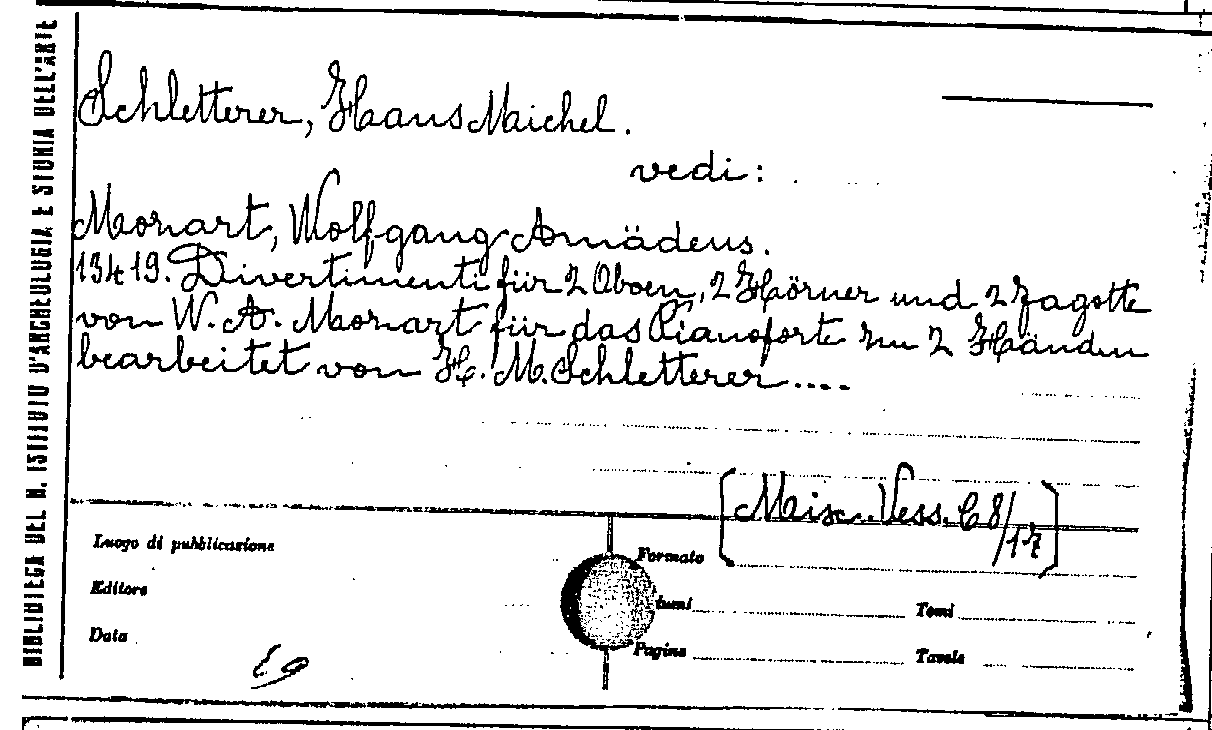 BIBLIOTECA DEL R. ISTITUTO D'ARCHEOLOGIA E STORIA DELL'ARTE
Schletterer, Hans Maichel.
vedi:
Mozart, Wolfgang Amadäus.
13419. Divertimenti für 2 Oboen, 2 Hörner und 2 Fagotte
von W. A. Mozart für das Pianoforte zu 2 Händen
bearbeitet von H. M. Schletterer....
[Misc. Vess. C 8/17]
Luogo di pubblicazione
Formato
Editore
lumi
Tomi
Data
Pagine
Tavole